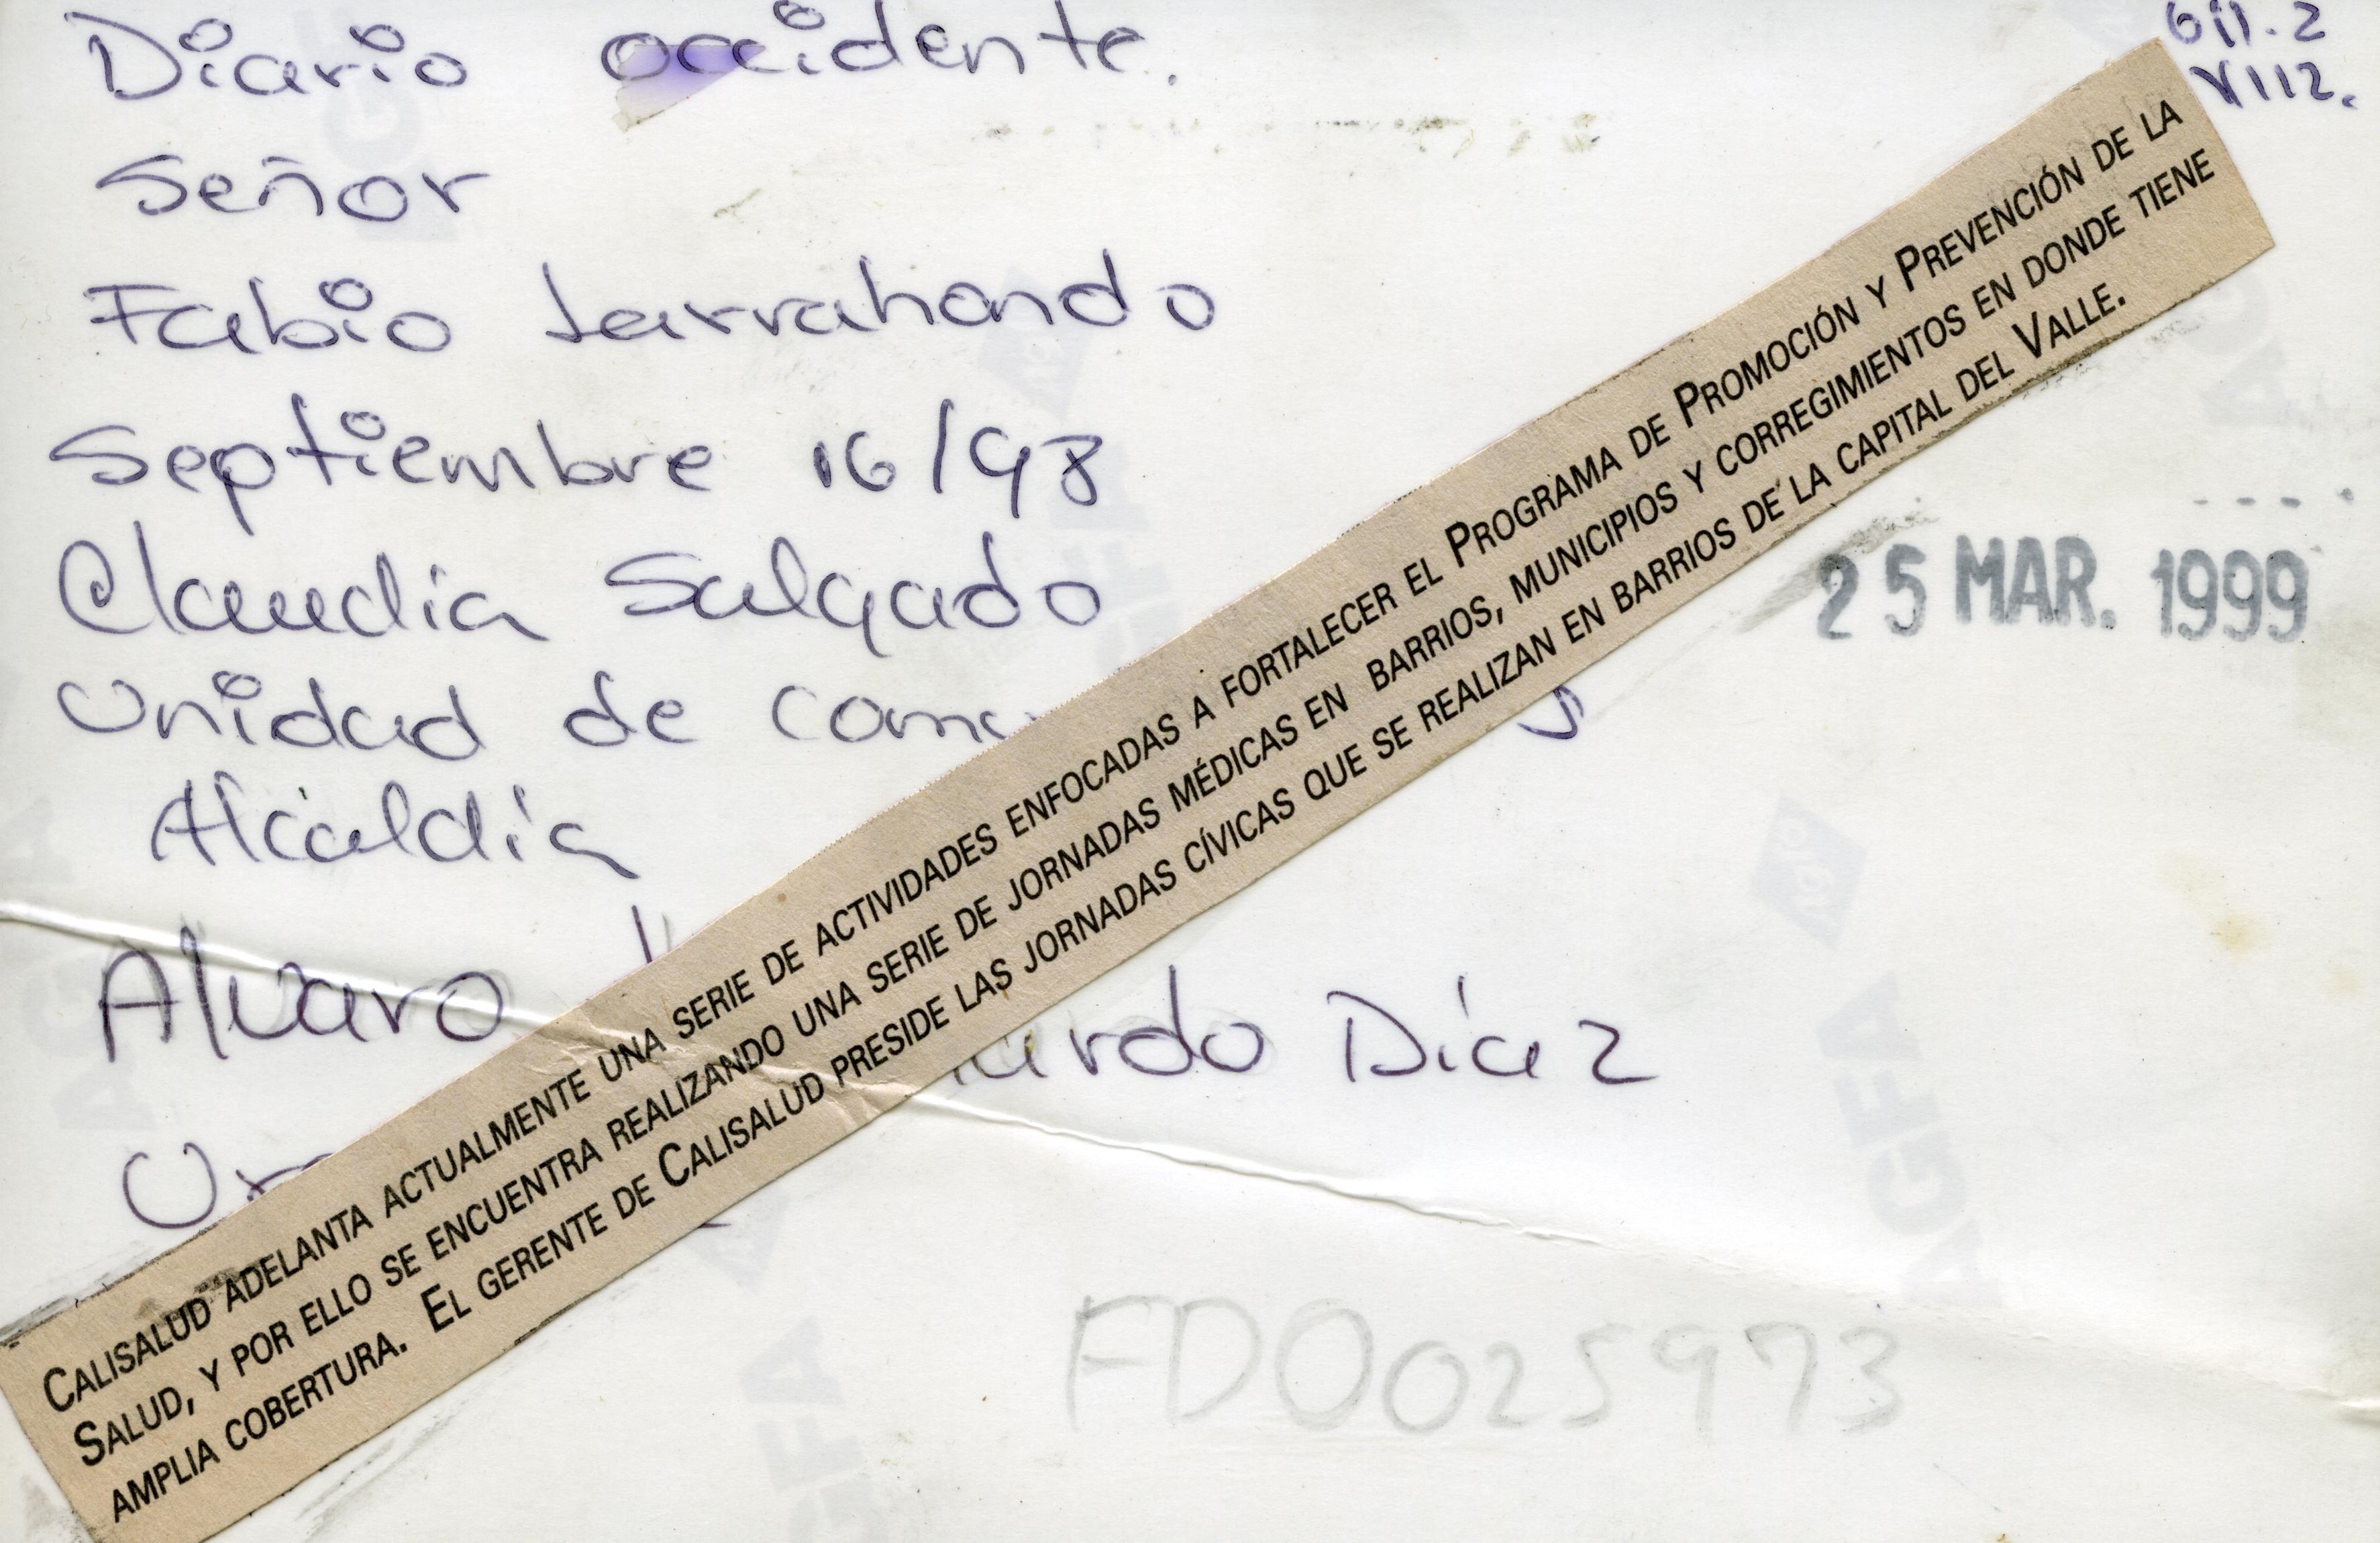 Diario occidente.
611.2
V112.
Señor
Fabio Larrahondo
Septiembre 16/98
Claudia Salgado
Unidad de
Alcaldía
Alvaro
Díaz
25 MAR. 1999
FD0025973
CALISALUD ADELANTA ACTUALMENTE UNA SERIE DE ACTIVIDADES ENFOCADAS A FORTALECER EL PROGRAMA DE PROMOCIÓN Y PREVENCIÓN DE LA
SALUD, Y POR ELLO SE ENCUENTRA REALIZANDO UNA SERIE DE JORNADAS MÉDICAS EN BARRIOS, MUNICIPIOS Y CORREGIMIENTOS EN DONDE TIENE
AMPLIA COBERTURA. EL GERENTE DE CALISALUD PRESIDE LAS JORNADAS CÍVICAS QUE SE REALIZAN EN BARRIOS DE LA CAPITAL DEL VALLE.
AGFA
AGFA